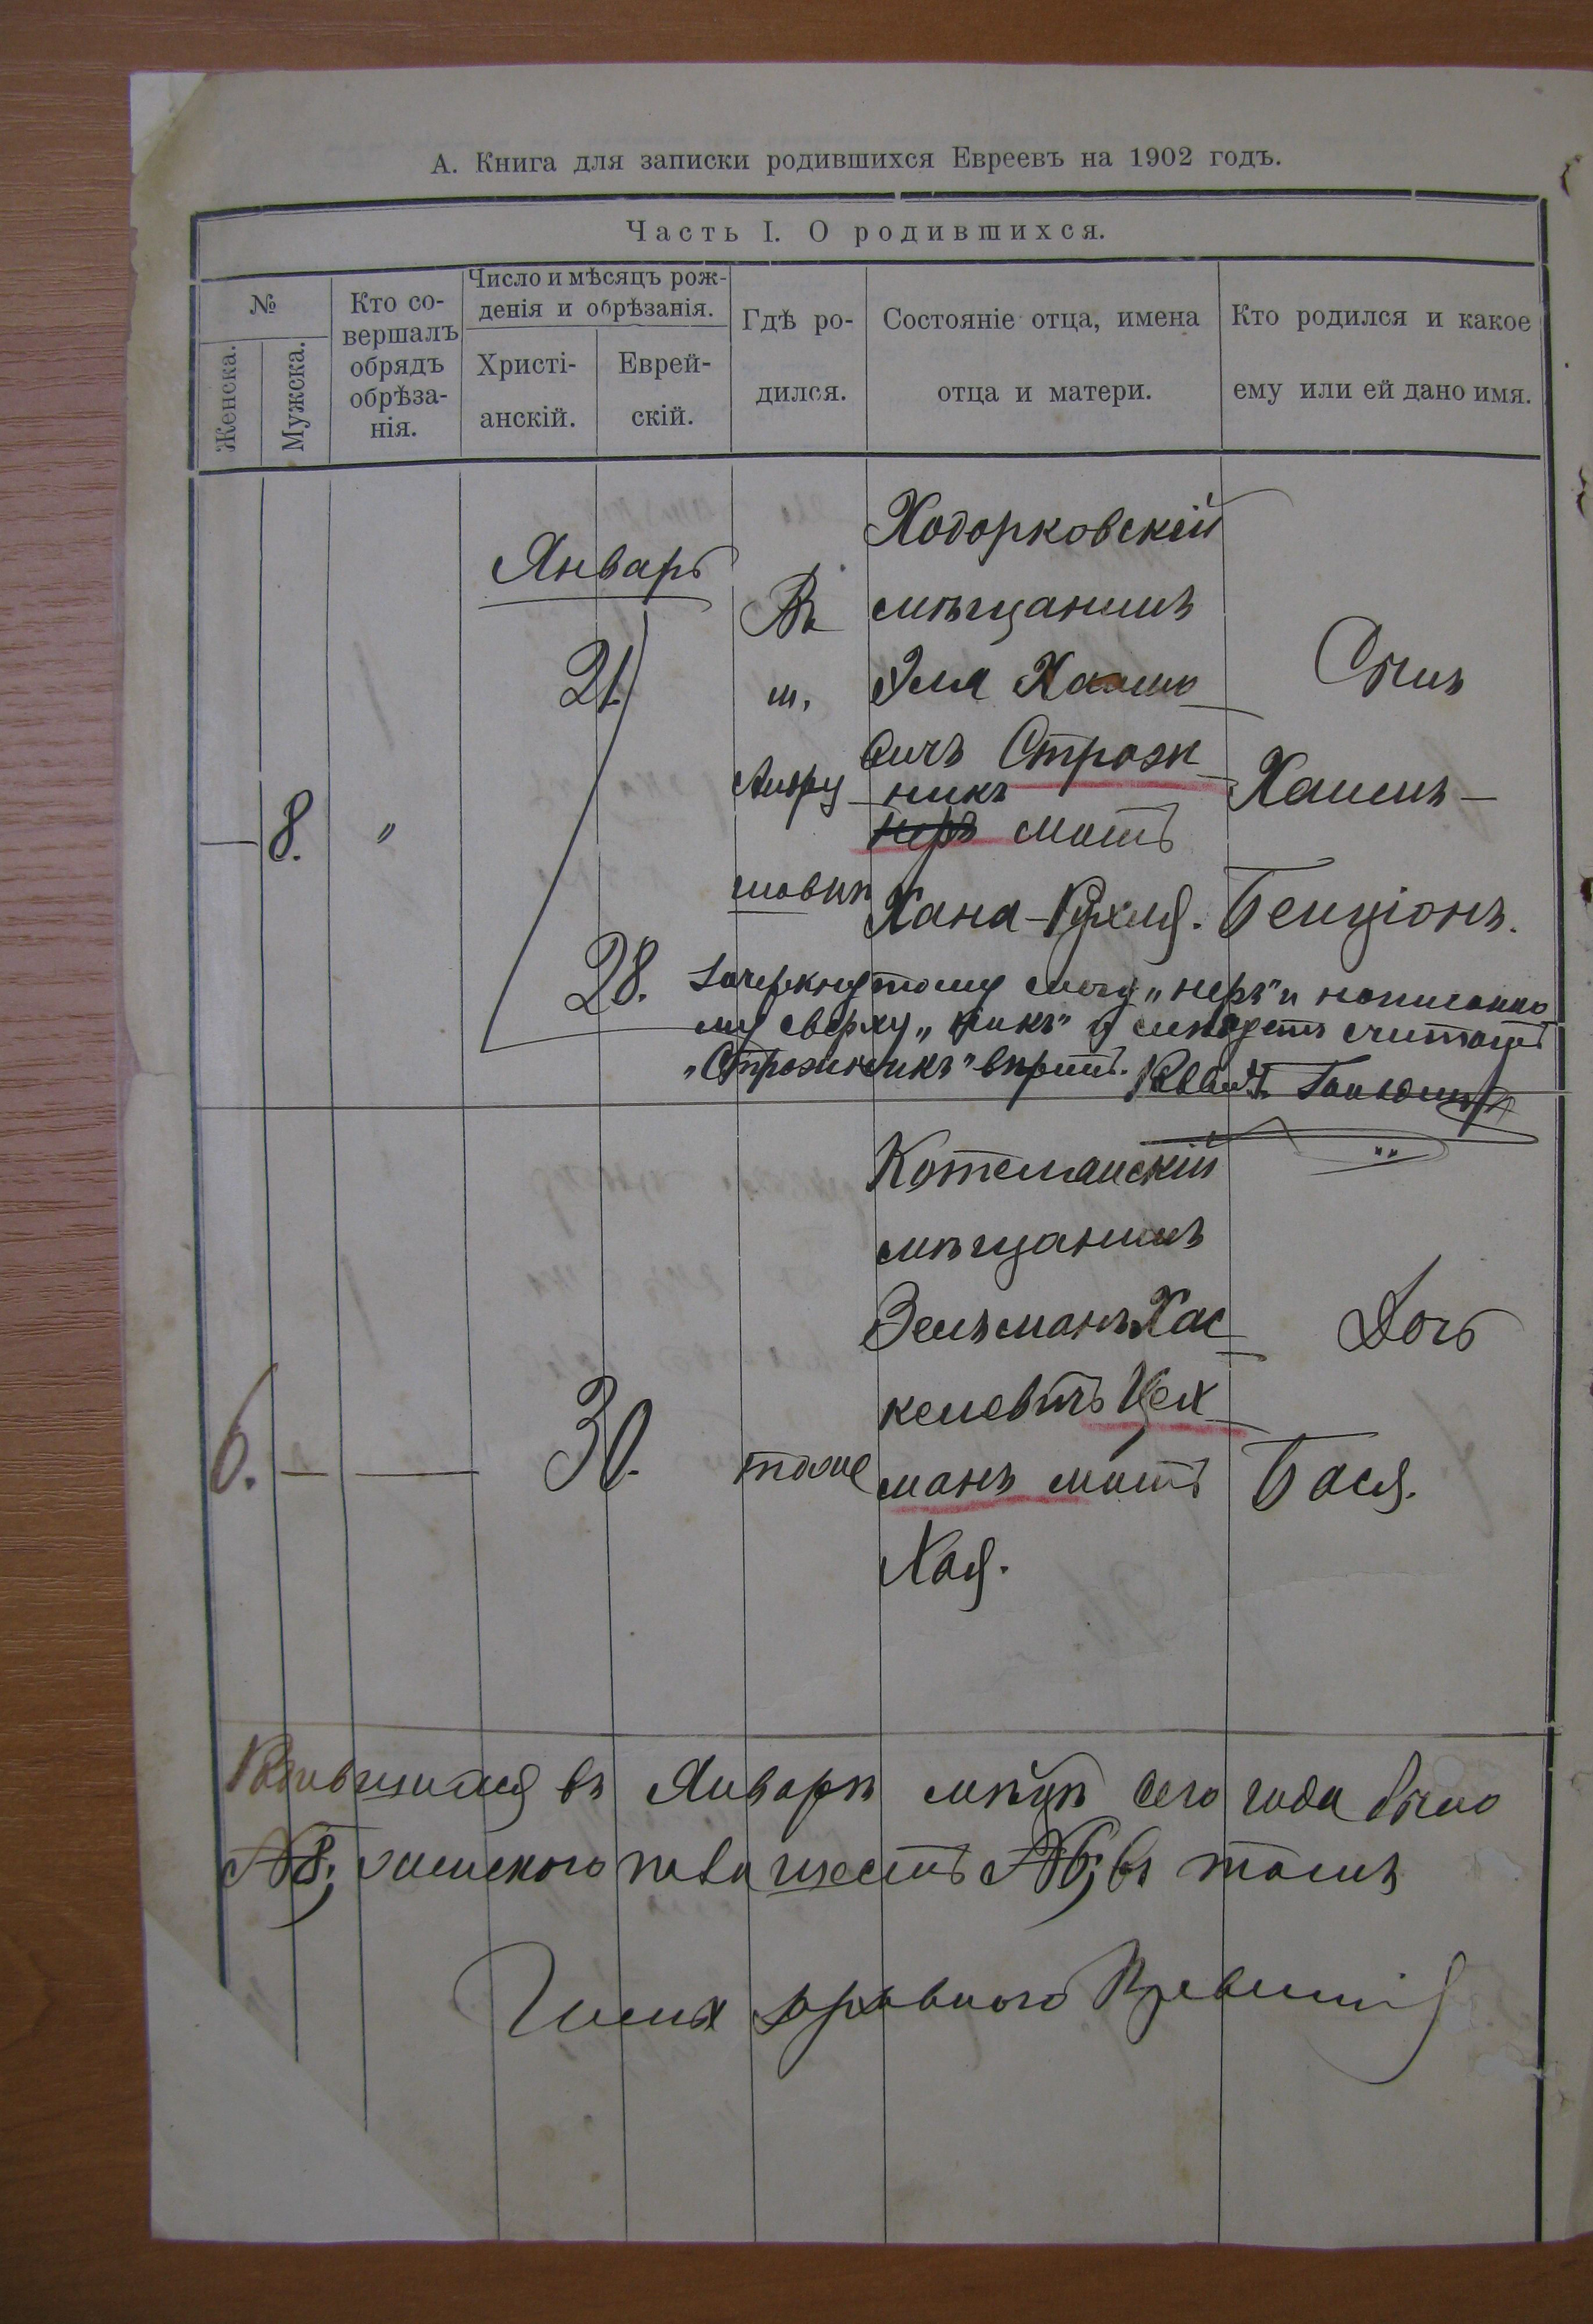 А. Книга для записки родившихся Евреевъ на 1902 годъ.
Часть I. О родившихся.
№
Женска.
Мужска.
Кто со-
вершалъ
обрядъ
обрѣза-
нія.
Число и мѣсяцъ рож-
денія и обрѣзанія.
Христі-
анскій.
Еврей-
скій.
Гдѣ ро-
дился.
Состояніе отца, имена
отца и матери.
Кто родился и какое
ему или ей дано имя.
— 8. "
Январь
21.
28.
Въ
м.
шовкѣ
Ходорковскій
мѣщанинъ
Эля
вичъ Строж-
никъ
неръ мать
Хана-Рухля.
Сынъ
Хаимъ-
Бенціонъ.
Зачеркнутому слогу „неръ" и написанно
му сверху „никъ" и слѣдуетъ считать
„Строжникъ" вѣрить. Раввинъ
6. — —
30.
тоже
Котелянскій
мѣщанинъ
Зельманъ Хас-
келевичъ Цех-
манъ мать
Хая.
Дочь
Бася.
Родившихся въ Январѣ мѣсяцѣ сего года было
№8; женского пола шесть №6; въ томъ